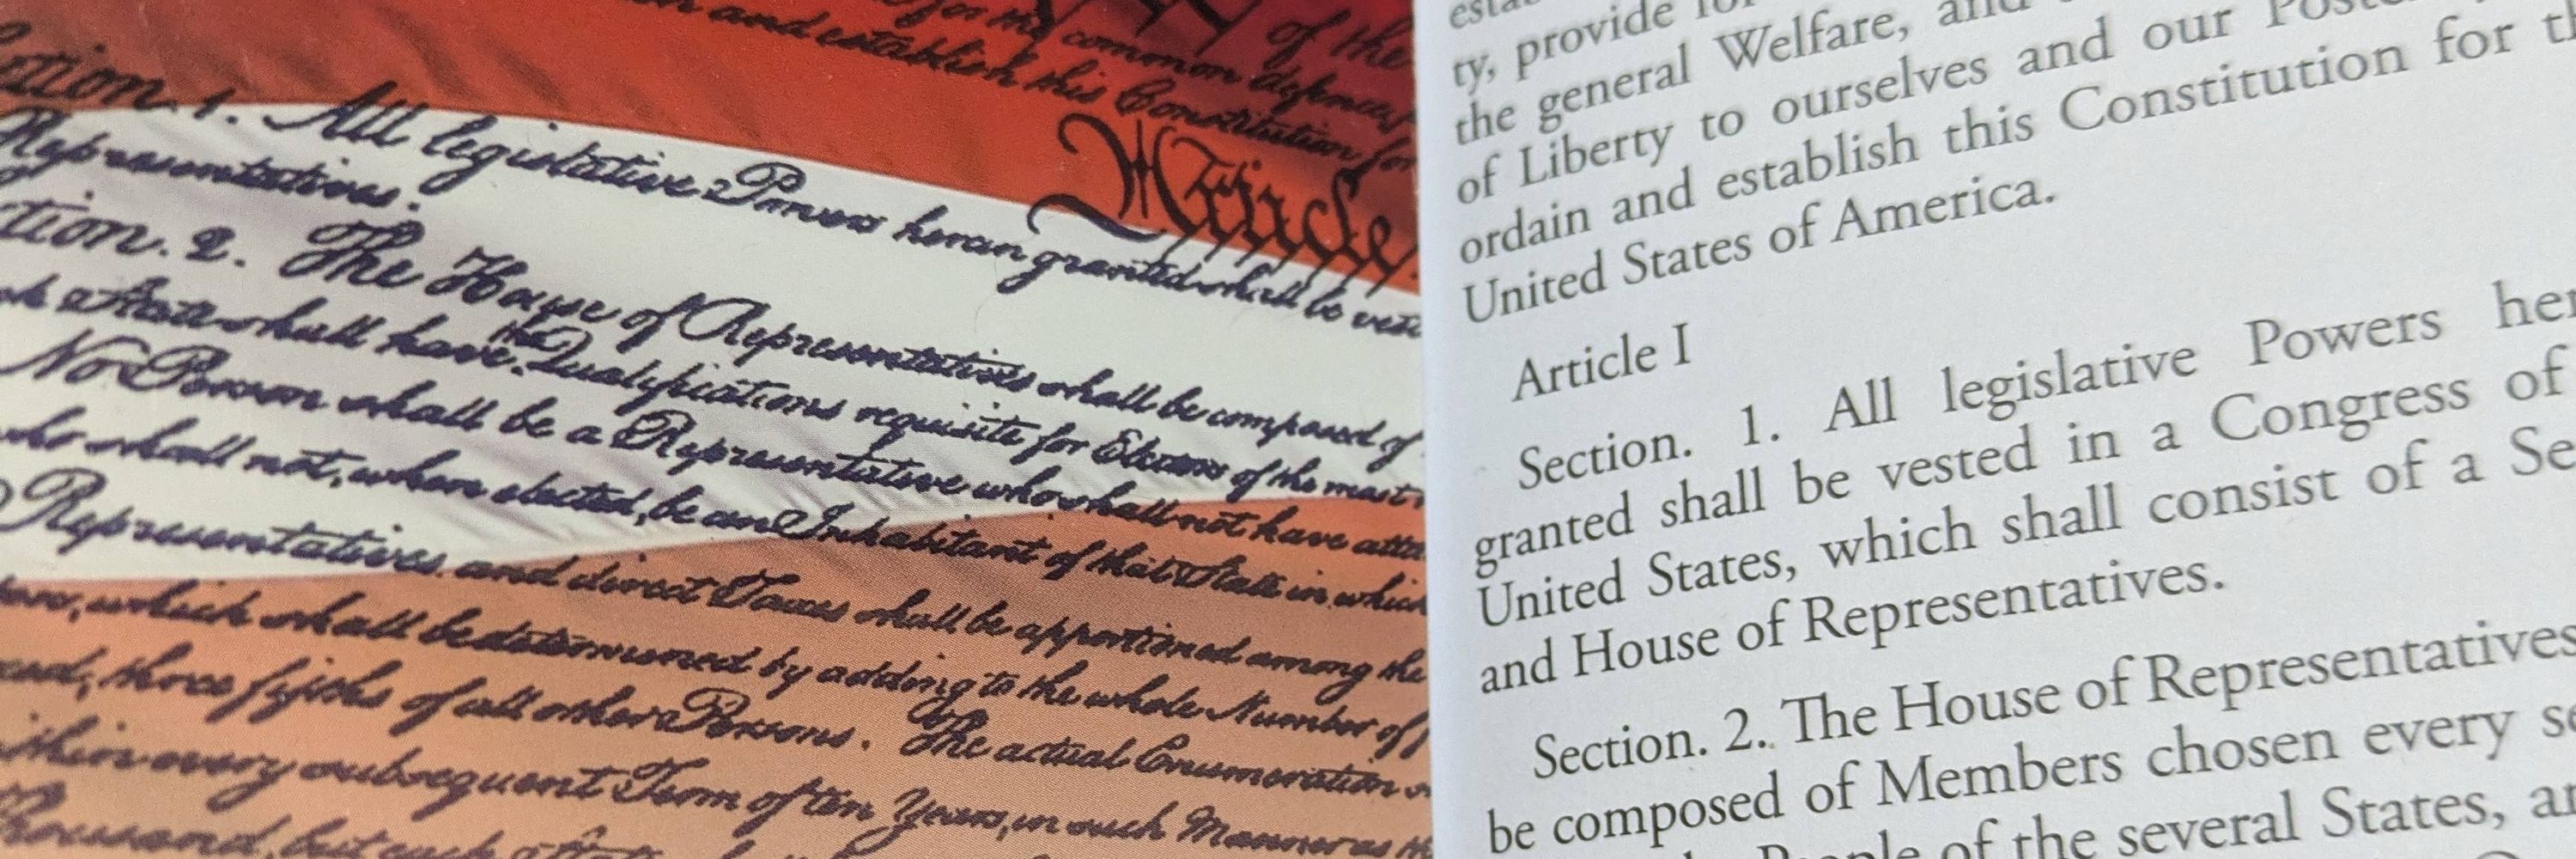 of the
for the common defence,
and establish this Constitution for
Article
ction. 1. All legislative Powers herein granted shall be vest
Representatives.
tion. 2. The House of Representatives shall be composed of
State shall have the Qualifications requisite for Electors of the most
No Person shall be a Representative who shall not have atta
who shall not, when elected, be an Inhabitant of that State in which
Representatives and direct Taxes shall be apportioned among the
which shall be determined by adding to the whole Number of
three fifths of all other Persons. The actual Enumeration
ithin every subsequent Term of ten Years, in such Manner as
Thousand, but each
ty, provide
the general Welfare, and
of Liberty to ourselves and our
ordain and establish this Constitution for th
United States of America.
Article I
Section. 1. All legislative Powers her
granted shall be vested in a Congress of
United States, which shall consist of a Se
and House of Representatives.
Section. 2. The House of Representatives
be composed of Members chosen every se
People of the several States, an